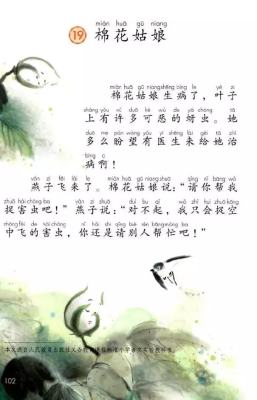 mián huā gū niang
19 棉花姑娘
mián huā gū niang shēng bìng le yè zi
棉花姑娘生病了，叶子
shàng yǒu xǔ duō kě wù de yá chóng tā
上有许多可恶的蚜虫。她
duō me pàn wàng yǒu yī shēng lái gěi tā zhì
多么盼望有医生来给她治
bìng a
病啊！
yàn zi fēi lái le mián huā gū niang shuō qǐng nǐ bāng wǒ
燕子飞来了。棉花姑娘说：“请你帮我
zhuō hài chóng ba yàn zi shuō duì bu qǐ wǒ zhǐ huì zhuō kōng
捉害虫吧！”燕子说：“对不起，我只会捉空
zhōng fēi de hài chóng nǐ hái shì qǐng bié rén bāng máng ba
中飞的害虫，你还是请别人帮忙吧！”
本文选自人民教育出版社义务教育课程标准小学语文实验教科书
102